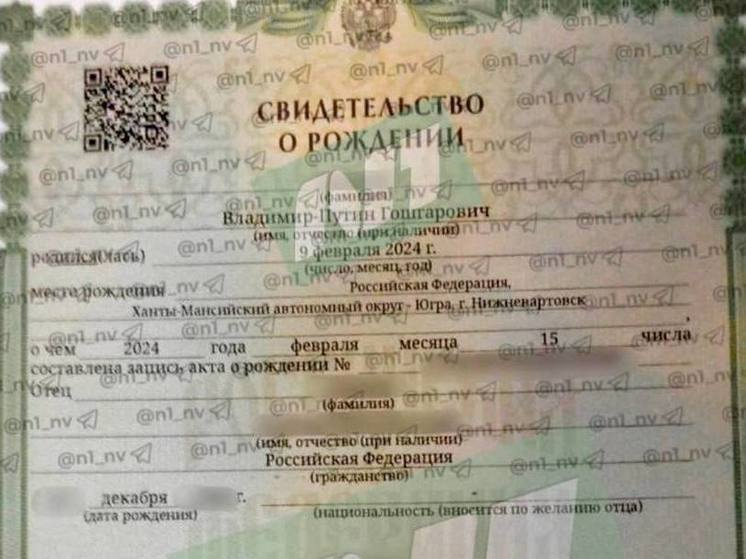 @n1_nv
СВИДЕТЕЛЬСТВО
О РОЖДЕНИИ
(фамилия)
Владимир-Путин Гошгарович
(имя, отчество (при наличии)
родился(лась) 9 февраля 2024 г.
(число, месяц, год)
место рождения Российская Федерация,
Ханты-Мансийский автономный округ - Югра, г. Нижневартовск
,
о чем 2024 года февраля месяца 15 числа
составлена запись акта о рождении №
Отец
(фамилия)
(имя, отчество (при наличии)
Российская Федерация
(гражданство)
декабря г. -
(дата рождения) (национальность (вносится по желанию отца)